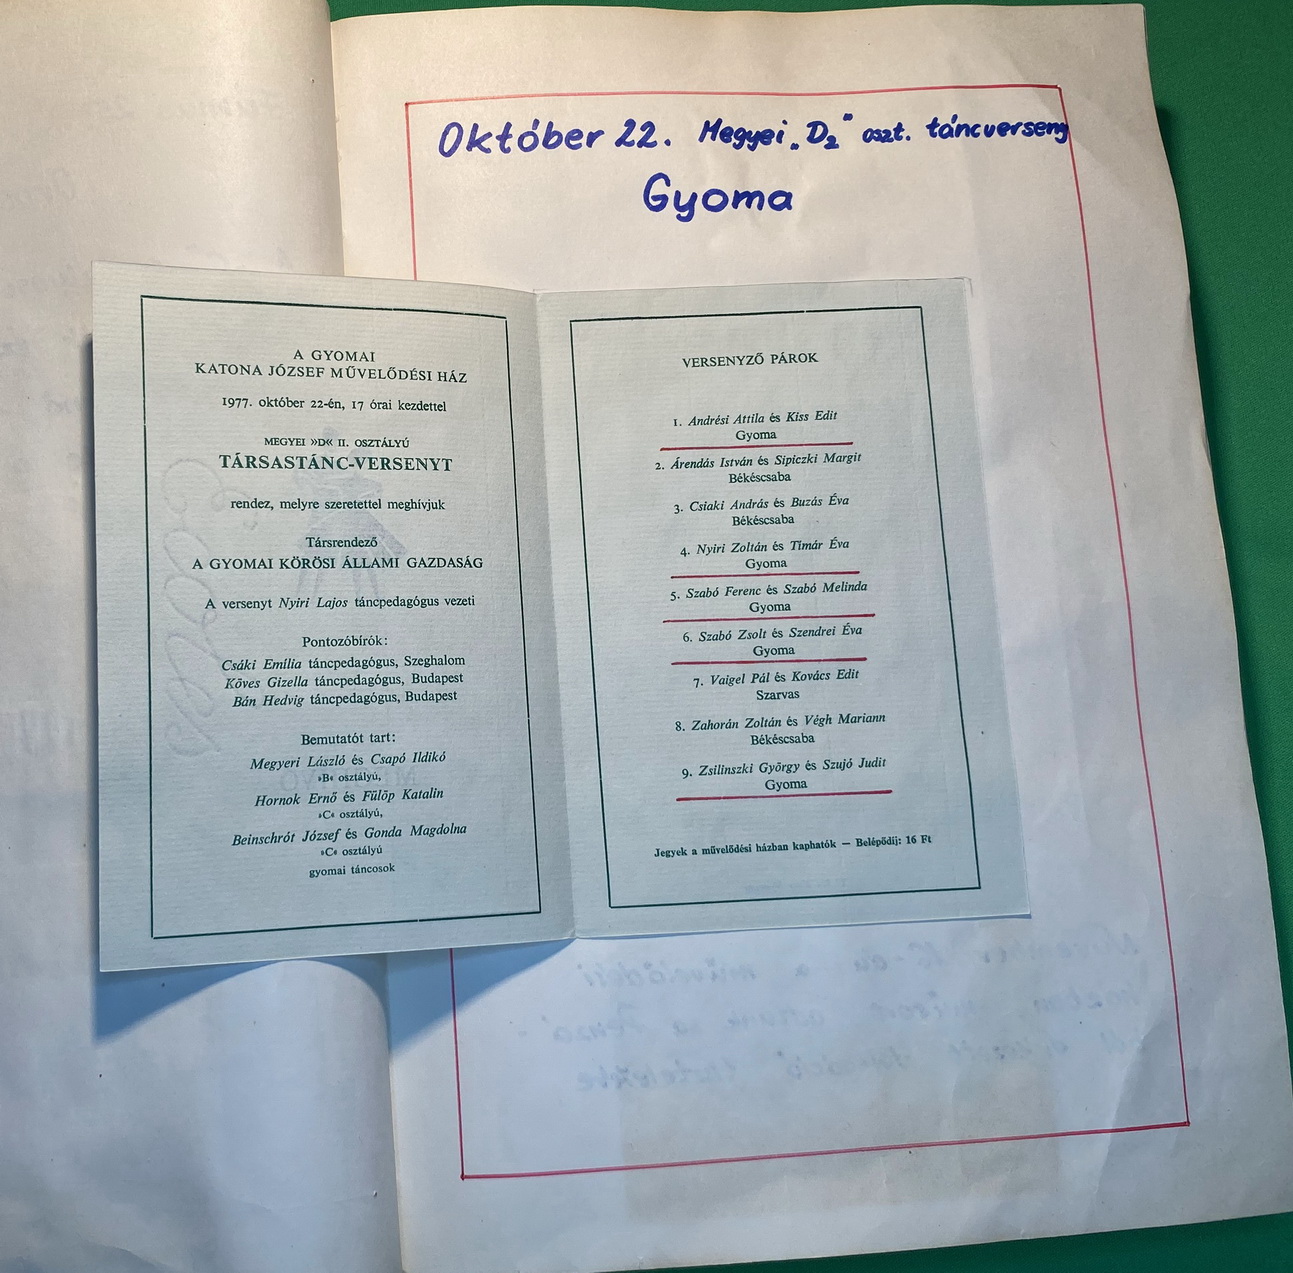 Október 22. Megyei „D₂" oszt. táncverseny
Gyoma
A GYOMAI
KATONA JÓZSEF MŰVELŐDÉSI HÁZ
1977. október 22-én, 17 órai kezdettel
MEGYEI »D« II. OSZTÁLYÚ
TÁRSASTÁNC-VERSENYT
rendez, melyre szeretettel meghívjuk
Társrendező
A GYOMAI KÖRÖSI ÁLLAMI GAZDASÁG
A versenyt Nyiri Lajos táncpedagógus vezeti
Pontozóbírók:
Csáki Emília táncpedagógus, Szeghalom
Köves Gizella táncpedagógus, Budapest
Bán Hedvig táncpedagógus, Budapest
Bemutatót tart:
Megyeri László és Csapó Ildikó
»B« osztályú,
Hornok Ernő és Fülöp Katalin
»C« osztályú,
Beinschrót József és Gonda Magdolna
»C« osztályú
gyomai táncosok
VERSENYZŐ PÁROK
1. Andrési Attila és Kiss Edit
Gyoma
2. Árendás István és Sipiczki Margit
Békéscsaba
3. Csiaki András és Buzás Éva
Békéscsaba
4. Nyiri Zoltán és Timár Éva
Gyoma
5. Szabó Ferenc és Szabó Melinda
Gyoma
6. Szabó Zsolt és Szendrei Éva
Gyoma
7. Vaigel Pál és Kovács Edit
Szarvas
8. Zahorán Zoltán és Végh Mariann
Békéscsaba
9. Zsilinszki György és Szujó Judit
Gyoma
Jegyek a művelődési házban kaphatók — Belépődíj: 16 Ft